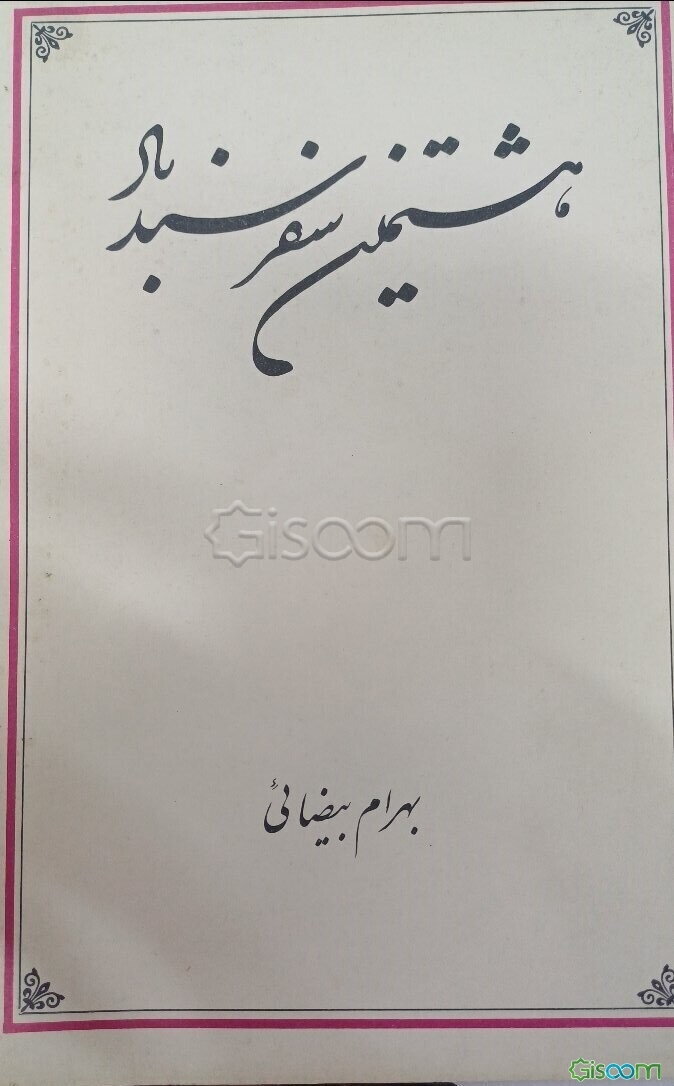 هشتمین سفر سندباد
Gisoom
بهرام بیضائیٔ
Gisoom